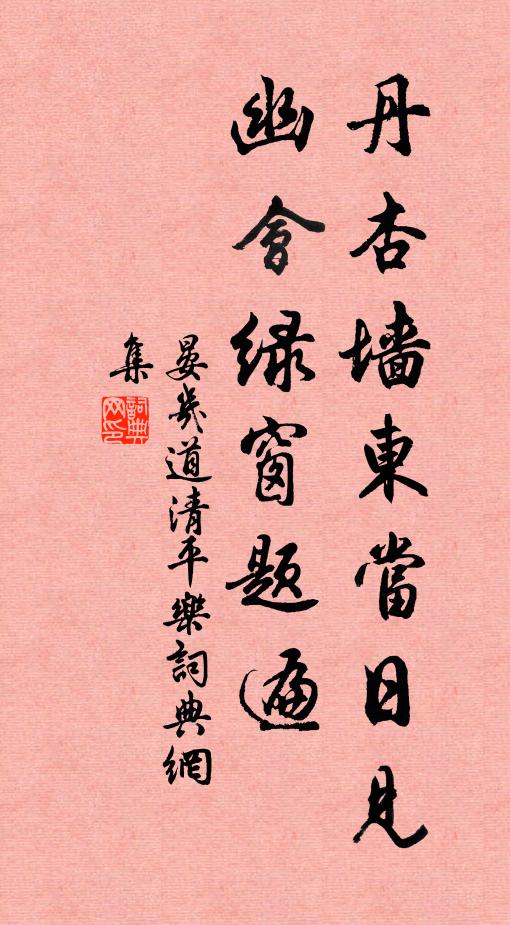 丹杏墙東當日見
幽會緑窗题遍
晏幾道清平樂詞典網
集
詞典
网印